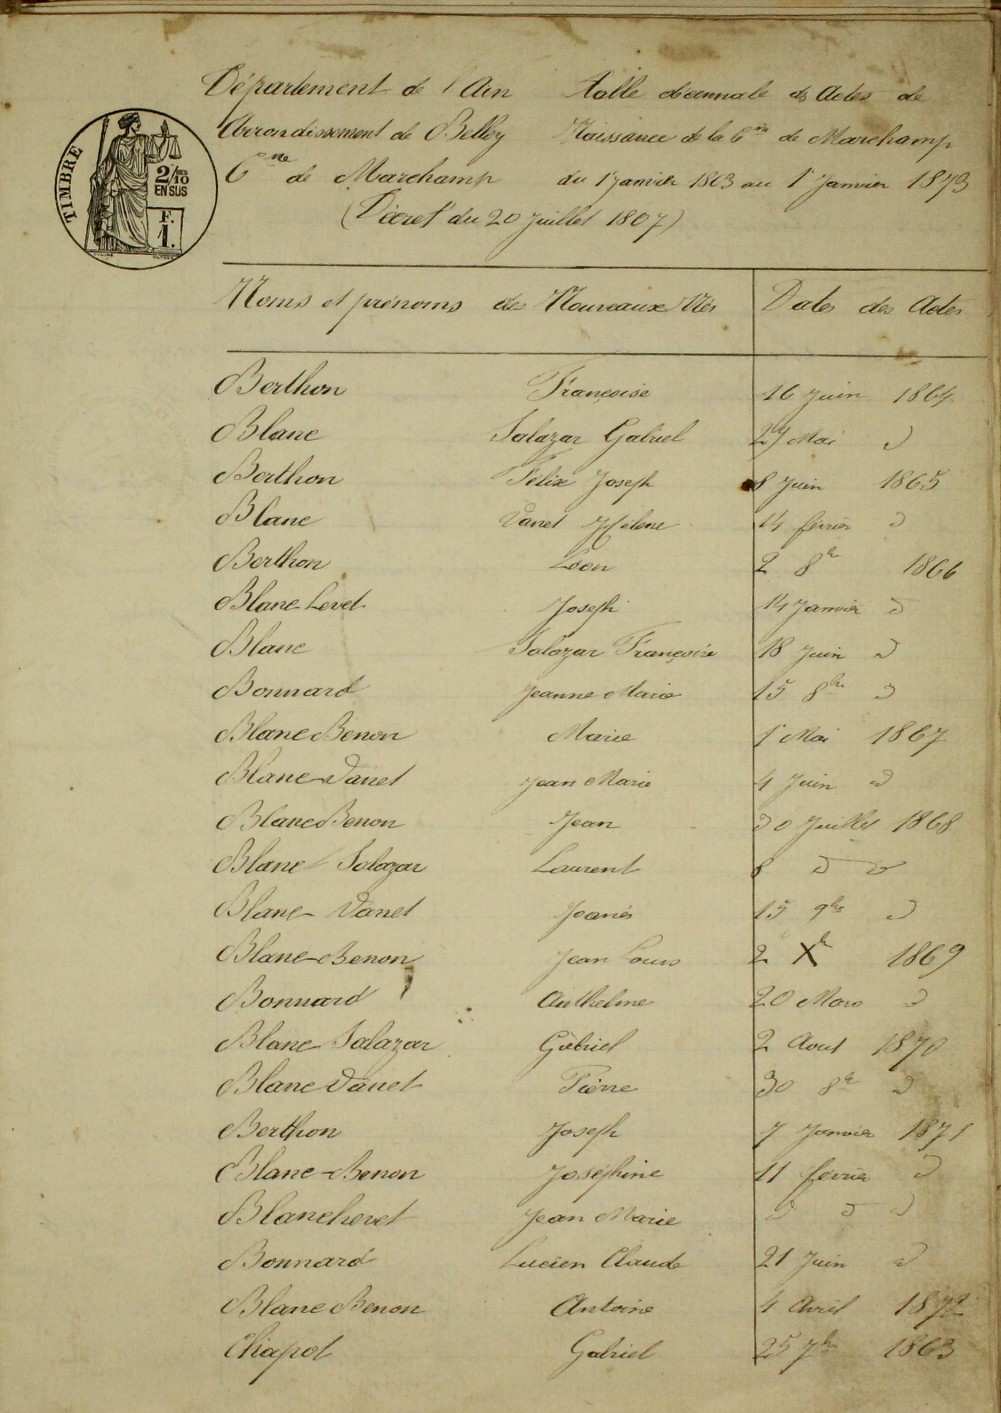 Département de l'Ain Table décennale des Actes de
Arrondissement de Belley Naissance de la Cne de Marchamp
Cne de Marchamp du 1 Janvier 1863 au 1r Janvier 1873
(Décret du 20 Juillet 1807)
TIMBRE
2/10
EN SUS
F.
1.
Noms et prénoms des Nouveaux Nés Dates des Actes
Berthon Françoise 16 Juin 1864
Blanc Salazar Gabriel 27 Mai d
Berthon Félix Joseph 8 Juin 1865
Blanc Vanet Hélène 14 février d
Berthon Léon 2 8re 1866
Blanc Levet Joseph 14 Janvier d
Blanc Salazar Françoise 18 Juin d
Bonnard Jeanne Marie 15 8bre d
Blanc Benon Marie 1r Mai 1867
Blanc Vanet Jean Marie 4 Juin d
Blanc Benon Jean 30 Juillet 1868
Blanc Salazar Laurent 8 d d
Blanc-Vanet Joanès 15 9bre d
Blanc-Benon Jean Louis 2 Xre 1869
Bonnard Anthelme 20 Mars d
Blanc Salazar Gabriel 2 Aout 1870
Blanc Vanet Pierre 30 8re d
Berthon Joseph 7 Janvier 1871
Blanc-Benon Joséphine 11 février d
Blanc Levet Jean Marie d d d
Bonnard Lucien Claude 21 Juin d
Blanc Benon Antoine 4 Avril 1872
Chapot Gabriel 25 7bre 1863